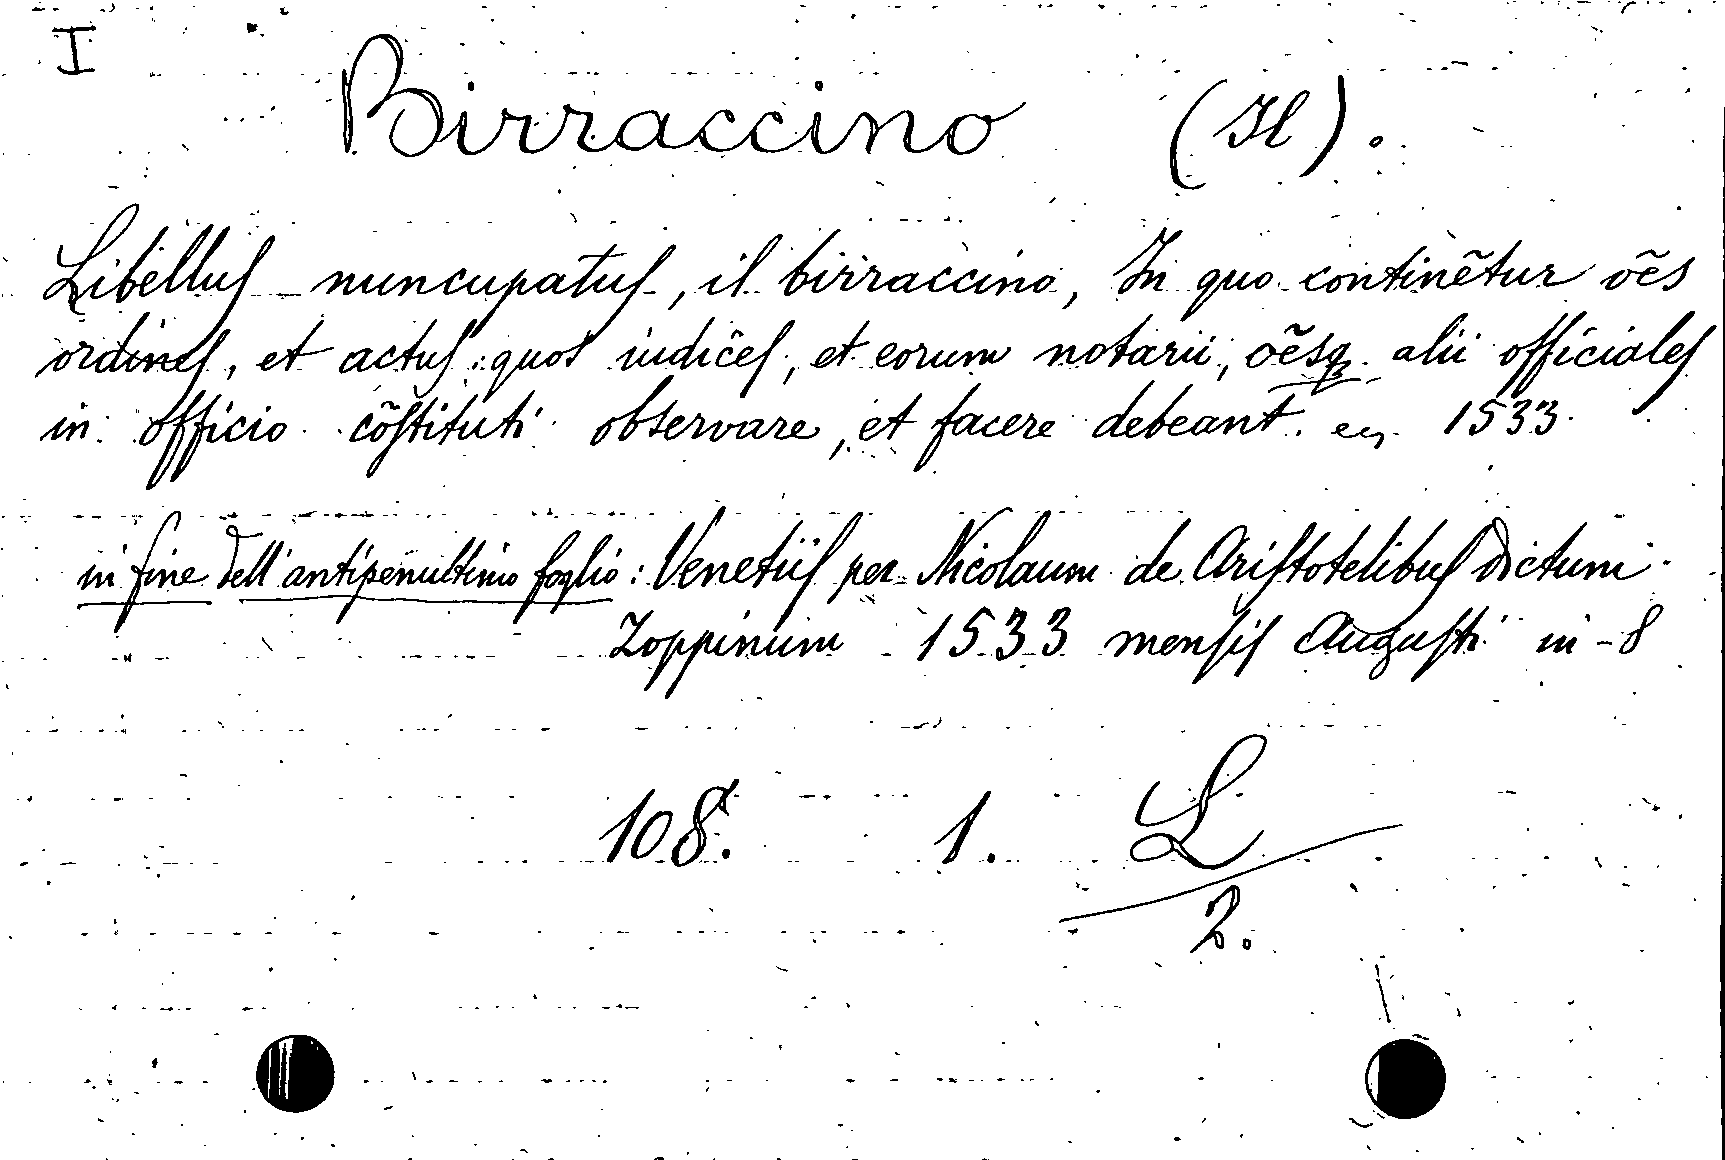 I
Birraccino (Il).
Libellus nuncupatus, il birraccino, In quo continētur oēs
ordines, et actus: quos iudices, et eorum notarii, oēsq alii officiales
in officio cōstituti observare, et facere debeant. 1533.
in fine dell'antipenultimo foglio: Venetiis per Nicolaum de Aristotelibus dictum
Zoppinum 1533 mensis Augusti in-8
108. 1. L
2.